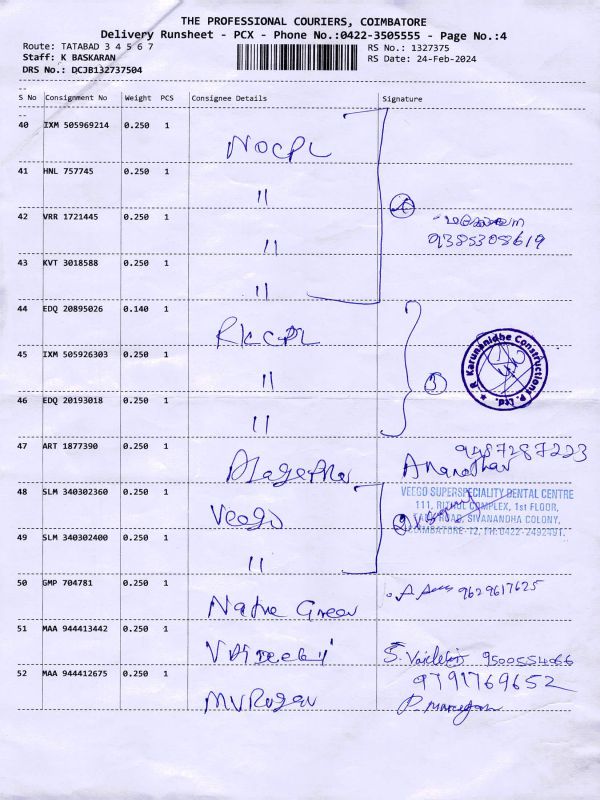 THE PROFESSIONAL COURIERS, COIMBATORE
Delivery Runsheet - PCX - Phone No.:0422-3505555 - Page No.:4
Route: TATABAD 3 4 5 6 7 RS No.: 1327375
Staff: K BASKARAN RS Date: 24-Feb-2024
DRS No.: DCJB132737504
S No Consignment No Weight PCS Consignee Details Signature
40 IXM 505969214 0.250 1 NOCPL
41 HNL 757745 0.250 1 "
42 VRR 1721445 0.250 1 " 4
9385308619
43 KVT 3018588 0.250 1 "
44 EDQ 20895026 0.140 1 RKCCPL
45 IXM 505926303 0.250 1 " 3
R. Karunanidhe Constructions P. Ltd.
46 EDQ 20193018 0.250 1 "
47 ART 1877390 0.250 1 9487287223
48 SLM 340302360 0.250 1 Veego
VEEGO SUPERSPECIALITY DENTAL CENTRE
111, RITHUL COMPLEX, 1st FLOOR,
ROAD, SIVANANDHA COLONY,
COIMBATORE-12, PH:0422-2492491.
2
49 SLM 340302400 0.250 1 "
50 GMP 704781 0.250 1 Natue Green 9629617625
51 MAA 944413442 0.250 1 9500554066
52 MAA 944412675 0.250 1 MVRugav 9791769652
P. Murugan